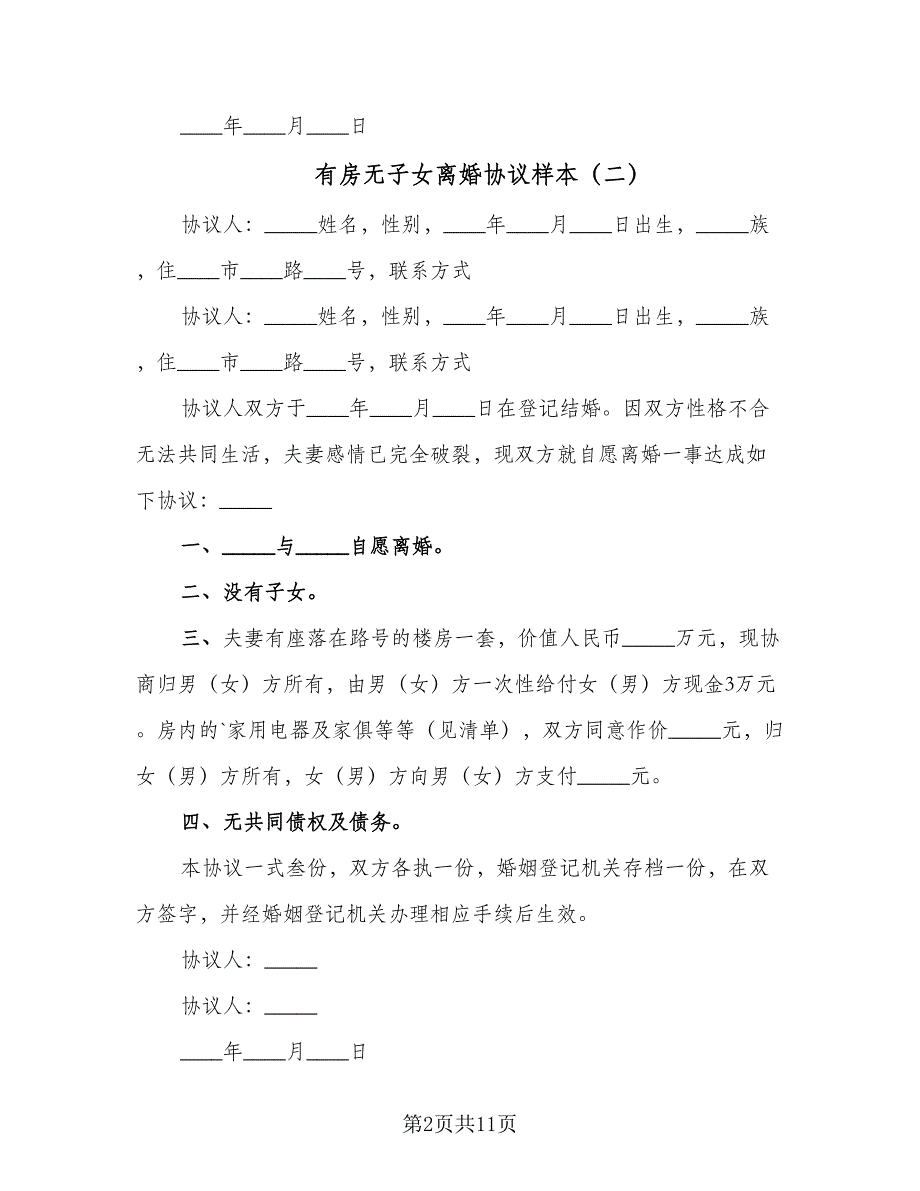 ____年____月____日
有房无子女离婚协议样本（二）
协议人：_____姓名，性别，____年____月____日出生，_____族
，住____市____路____号，联系方式
协议人：_____姓名，性别，____年____月____日出生，_____族
，住____市____路____号，联系方式
协议人双方于____年____月____日在登记结婚。因双方性格不合
无法共同生活，夫妻感情已完全破裂，现双方就自愿离婚一事达成如
下协议：_____
一、_____与_____自愿离婚。
二、没有子女。
三、夫妻有座落在路号的楼房一套，价值人民币_____万元，现协
商归男（女）方所有，由男（女）方一次性给付女（男）方现金3万元
。房内的`家用电器及家俱等等（见清单），双方同意作价_____元，归
女（男）方所有，女（男）方向男（女）方支付_____元。
四、无共同债权及债务。
本协议一式叁份，双方各执一份，婚姻登记机关存档一份，在双
方签字，并经婚姻登记机关办理相应手续后生效。
协议人：_____
协议人：_____
____年____月____日
第2页共11页